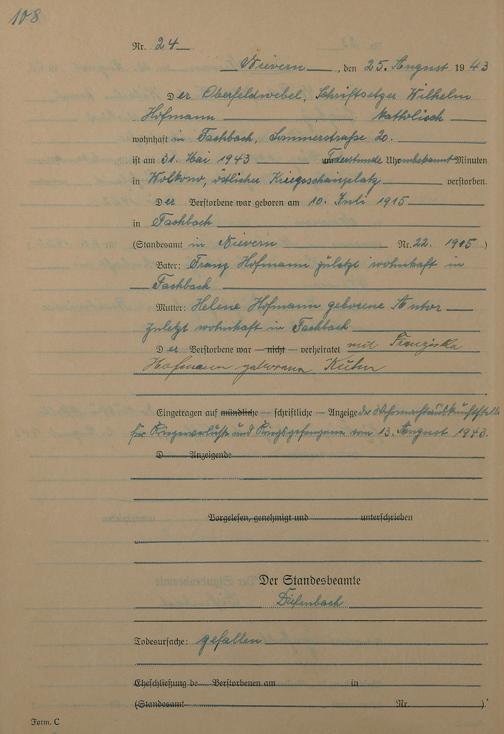 108
Nr. 24
Nievern, den 25. August 1943
Der Oberfeldwebel, Schriftsetzer Wilhelm
Hofmann katholisch
wohnhaft in Fachbach, Sommerstraße 20.
ist am 31. Mai 1943 um Todesstunde Uhr unbekannt Minuten
in Wolkowo, östlicher Kriegsschauplatz verstorben.
Der Verstorbene war geboren am 10. Juli 1915
in Fachbach
(Standesamt in Nievern Nr. 22. 1915)
Vater: Franz Hofmann zuletzt wohnhaft in
Fachbach
Mutter: Helene Hofmann geborene
zuletzt wohnhaft in Fachbach
Der Verstorbene war — nicht — verheiratet mit Franziska
Hofmann geborene Kuhn
Eingetragen auf mündliche — schriftliche — Anzeige der Wehrmachtauskunftstelle
für Kriegerverluste und Kriegsgefangene vom 13. August 1943.
D Anzeigende
Vorgelesen, genehmigt und unterschrieben
Der Standesbeamte
Diefenbach
Todesursache: gefallen
Eheschließung de Verstorbenen am in
(Standesamt Nr. ).
Form. C